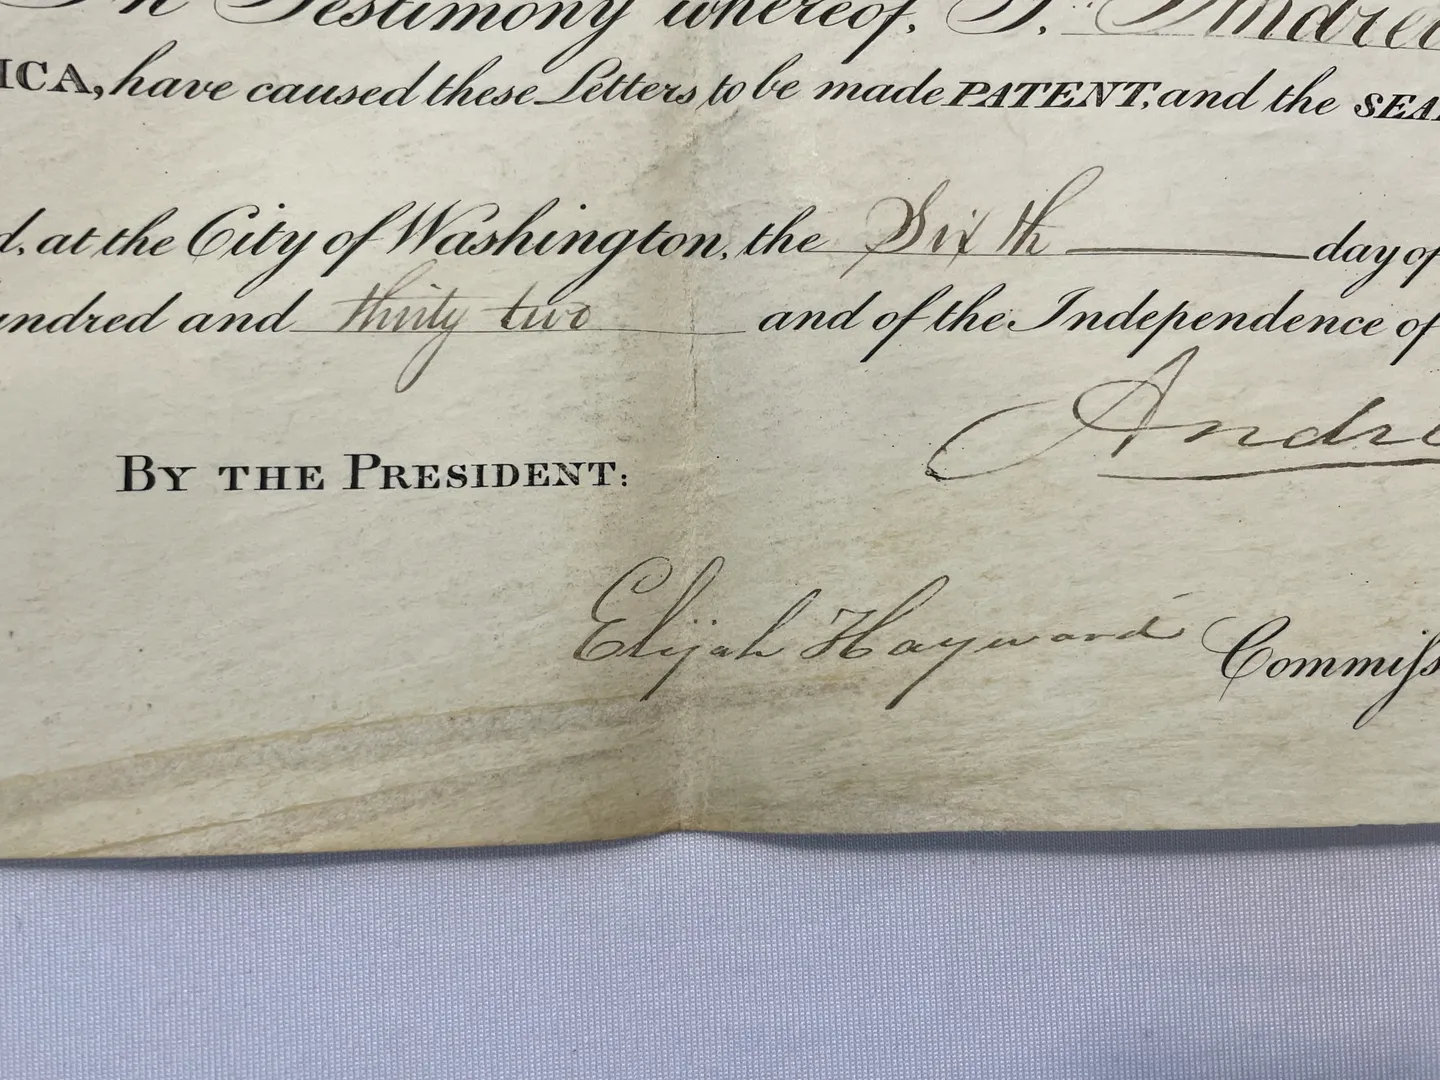 In Testimony whereof, I, Andrew
ICA, have caused these Letters to be made PATENT, and the SEA
d, at the City of Washington, the Sixth day of
undred and thirty two and of the Independence of
Andre
BY THE PRESIDENT:
Elijah Hayward Commiſs